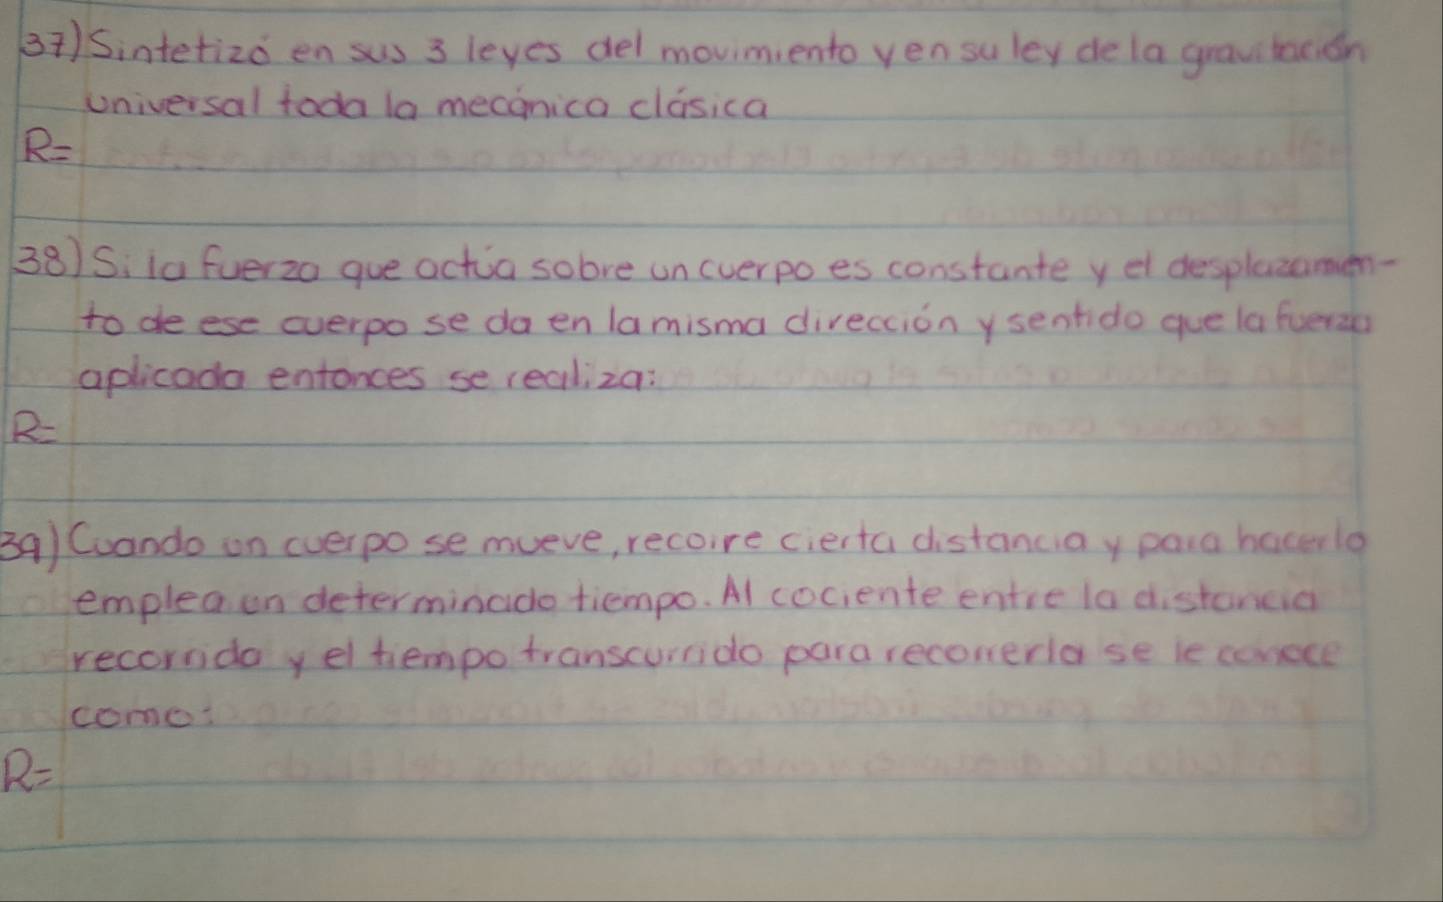 37) Sintetizó en sus 3 leyes del movimiento y en su ley de la gravitación
universal toda la mecánica clásica
R=
38) Si la fuerza que actúa sobre un cuerpo es constante y el desplazamien-
to de ese cuerpo se da en la misma dirección y sentido que la fuerza
aplicada entonces se realiza:
R=
39) Cuando un cuerpo se mueve, recorre cierta distancia y para hacerlo
emplea un determinado tiempo. Al cociente entre la distancia
recorrida y el tiempo transcurrido para recorrerla se le conoce
como:
R=